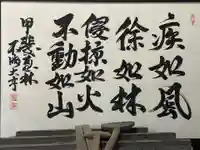 疾如風
徐如林
侵掠如火
不動如山
甲斐恵林